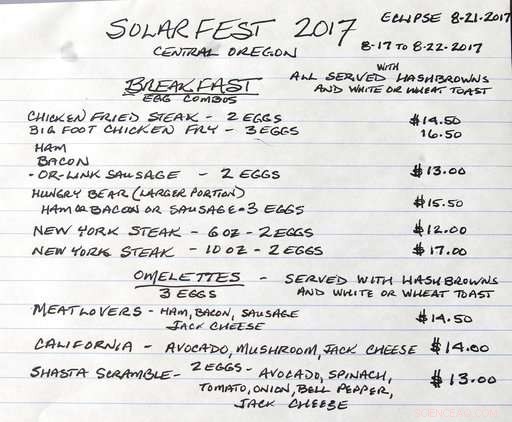 SOLARFEST 2017 ECLIPSE 8-21-2017
CENTRAL OREGON 8-17 TO 8-22-2017
BREAKFAST ALL SERVED WITH HASHBROWNS
EGG COMBOS AND WHITE OR WHEAT TOAST
CHICKEN FRIED STEAK - 2 EGGS $14.50
BIG FOOT CHICKEN FRY - 3 EGGS 16.50
HAM
BACON
-OR-LINK SAUSAGE - 2 EGGS $13.00
HUNGRY BEAR (LARGER PORTION)
HAM OR BACON OR SAUSAGE-3 EGGS $15.50
NEW YORK STEAK - 6 OZ - 2 EGGS $12.00
NEW YORK STEAK - 10 OZ - 2 EGGS $17.00
OMELETTES - SERVED WITH HASHBROWNS
3 EGGS AND WHITE OR WHEAT TOAST
MEATLOVERS - HAM, BACON, SAUSAGE
JACK CHEESE $14.50
CALIFORNIA - AVOCADO, MUSHROOM, JACK CHEESE $14.00
SHASTA SCRAMBLE - 2 EGGS - AVOCADO, SPINACH, $13.00
TOMATO, ONION, BELL PEPPER,
JACK CHEESE